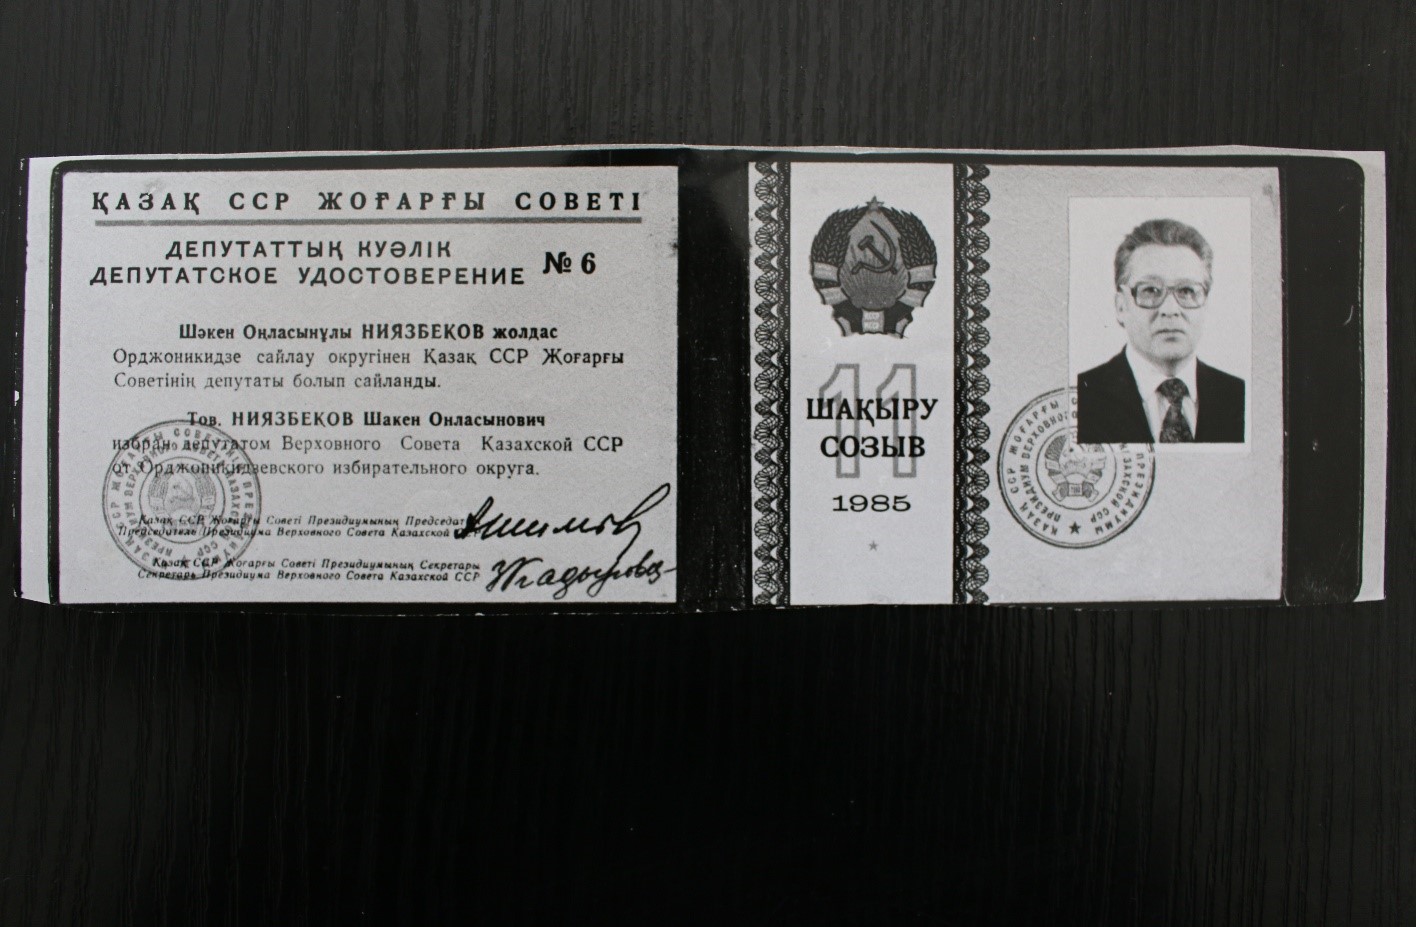 ҚАЗАҚ ССР ЖОҒАРҒЫ СОВЕТІ
ДЕПУТАТТЫҚ КУӘЛІК
ДЕПУТАТСКОЕ УДОСТОВЕРЕНИЕ № 6
Шәкен Оңласынұлы НИЯЗБЕКОВ жолдас
Орджоникидзе сайлау округінен Қазақ ССР Жоғарғы
Советінің депутаты болып сайланды.
Тов. НИЯЗБЕКОВ Шакен Онласынович
избран депутатом Верховного Совета Казахской ССР
от Орджоникидзевского избирательного округа.
Қазақ ССР Жоғарғы Советі Президиумының Председат
Председатель Президиума Верховного Совета Казахской ССР
Қазақ ССР Жоғарғы Советі Президиумының Секретары
Секретарь Президиума Верховного Совета Казахской ССР
11
ШАҚЫРУ
СОЗЫВ
1985
ҚАЗАҚ ССР ЖОҒАРҒЫ ПРЕЗИДИУМЫ
ПРЕЗИДИУМ ВЕРХОВНОГО КАЗАХСКОЙ ССР